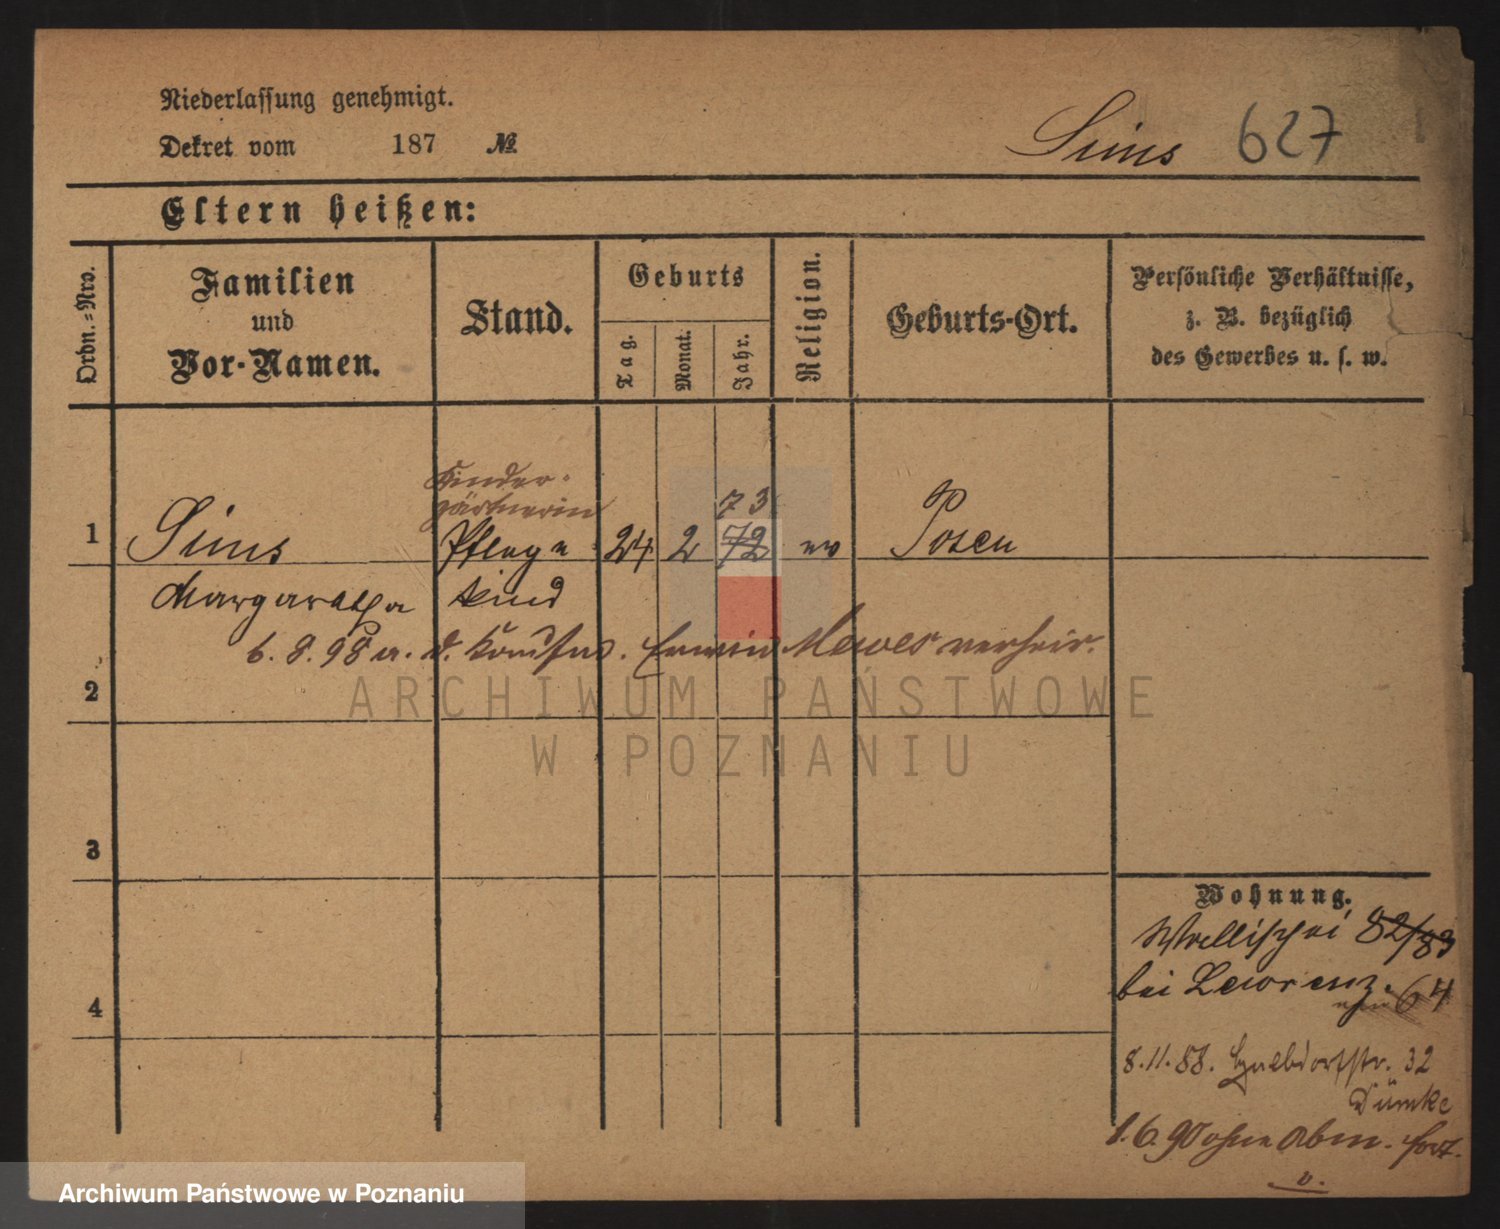 Niederlassung genehmigt.
Dekret vom 187 №
Sims 627
Eltern heißen:
Ordn.=Nro.
Familien
und
Vor-Namen.
Stand.
Geburts
Tag.
Monat.
Jahr.
Religion.
Geburts-Ort.
Persönliche Verhältnisse,
z. B. bezüglich
des Gewerbes u. s. w.
Kinder-
gärtnerin
73
1 Sims Pflege 24 2 72 ev Posen
Margaretha kind
6. 8. 98 a. d. Kaufm. Erwin Mewes verheir.
2
ARCHIWUM PAŃSTWOWE
W POZNANIU
3
Wohnung.
Wallischei 82/83
bei Lawrenz.
64
4
8.11.88. 32
Dümke
1.6.90 ohne Abm. fort.
v.
Archiwum Państwowe w Poznaniu